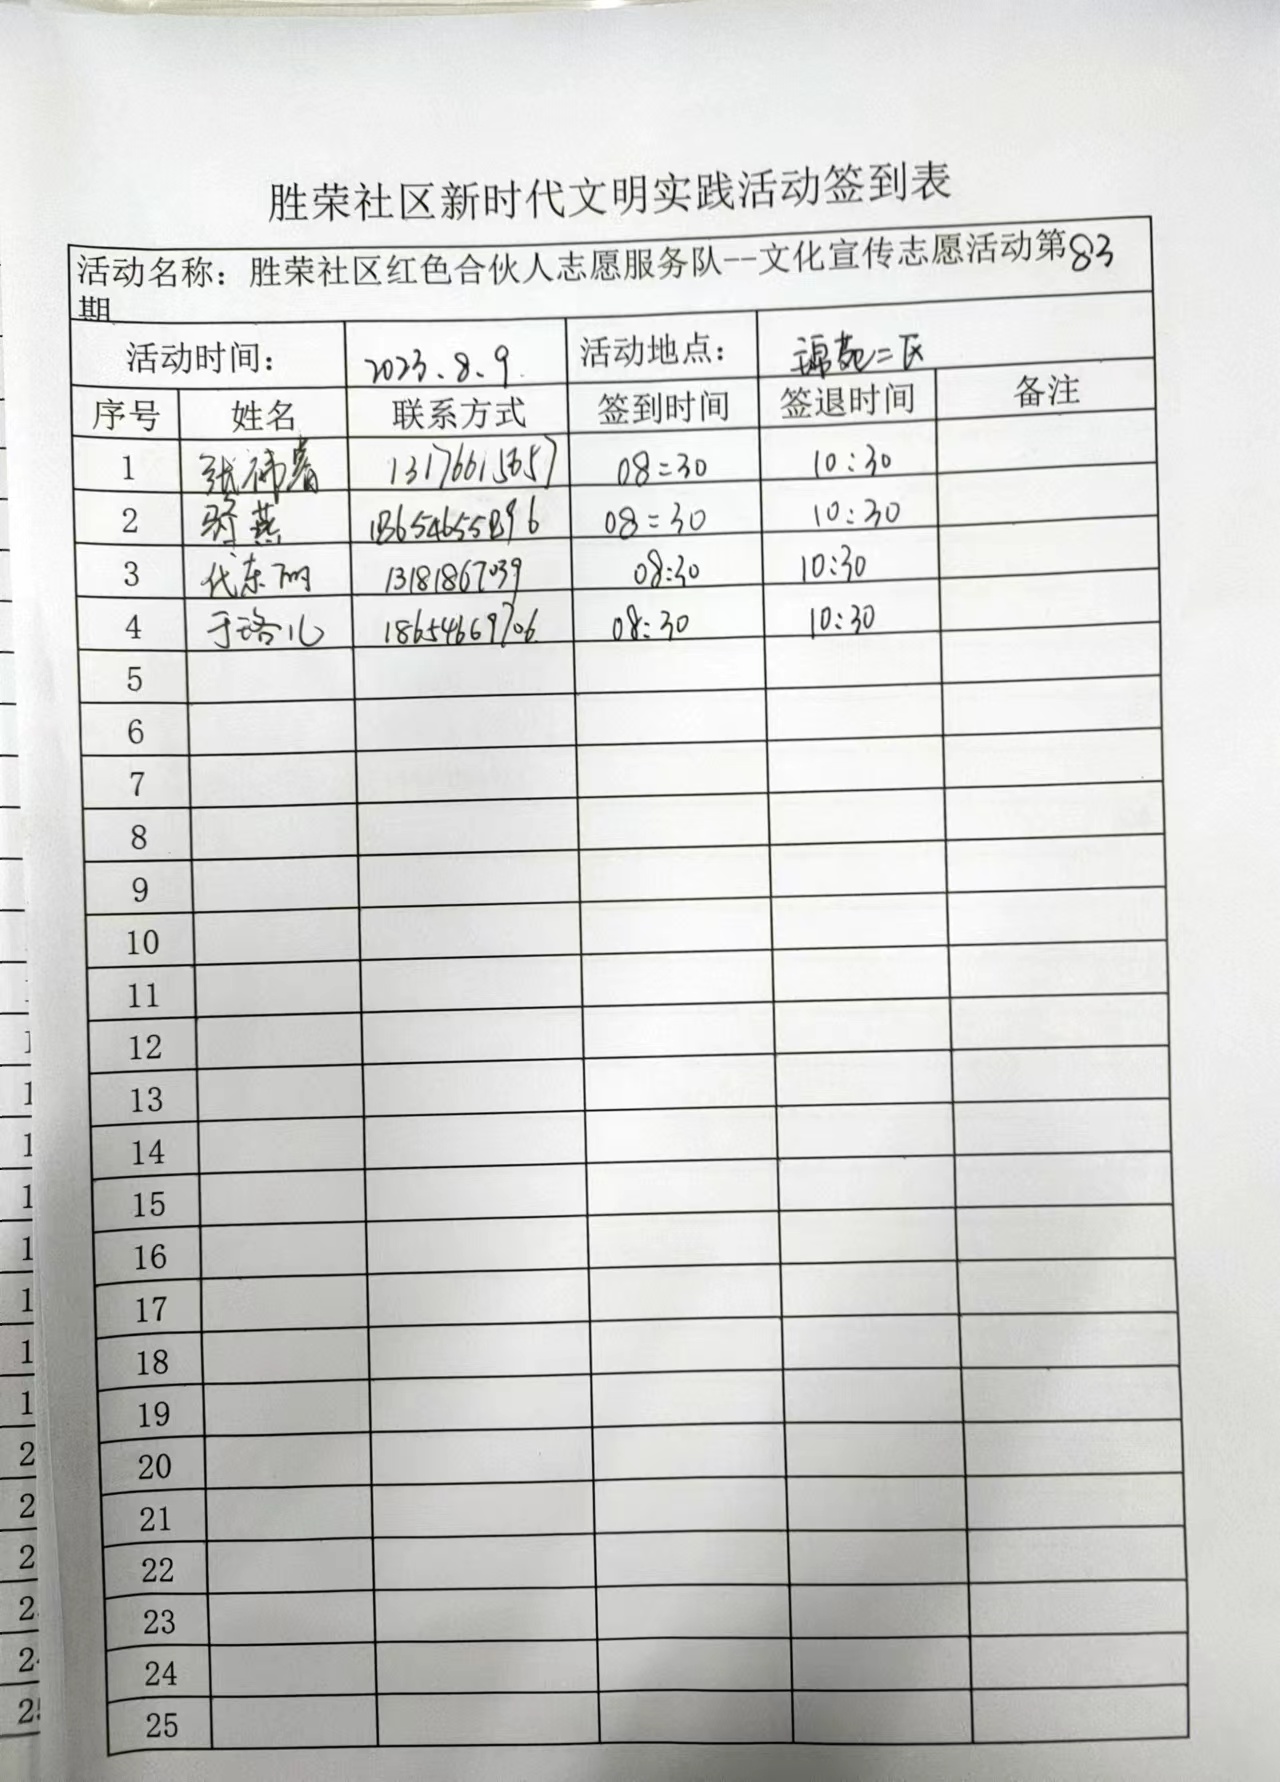 胜荣社区新时代文明实践活动签到表
活动名称：胜荣社区红色合伙人志愿服务队--文化宣传志愿活动第83
期
活动时间： 2023.8.9 活动地点： 锦苑二区
序号 姓名 联系方式 签到时间 签退时间 备注
1 张 13176615657 08:30 10:30
2 燕 08:30 10:30
3 代东丽 13181867039 08:30 10:30
4 于 儿 18654669706 08:30 10:30
5
6
7
8
9
10
11
12
13
14
15
16
17
18
19
20
21
22
23
24
25